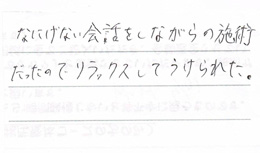 なにげない会話をしながらの施術
だったのでリラックスしてうけられた。